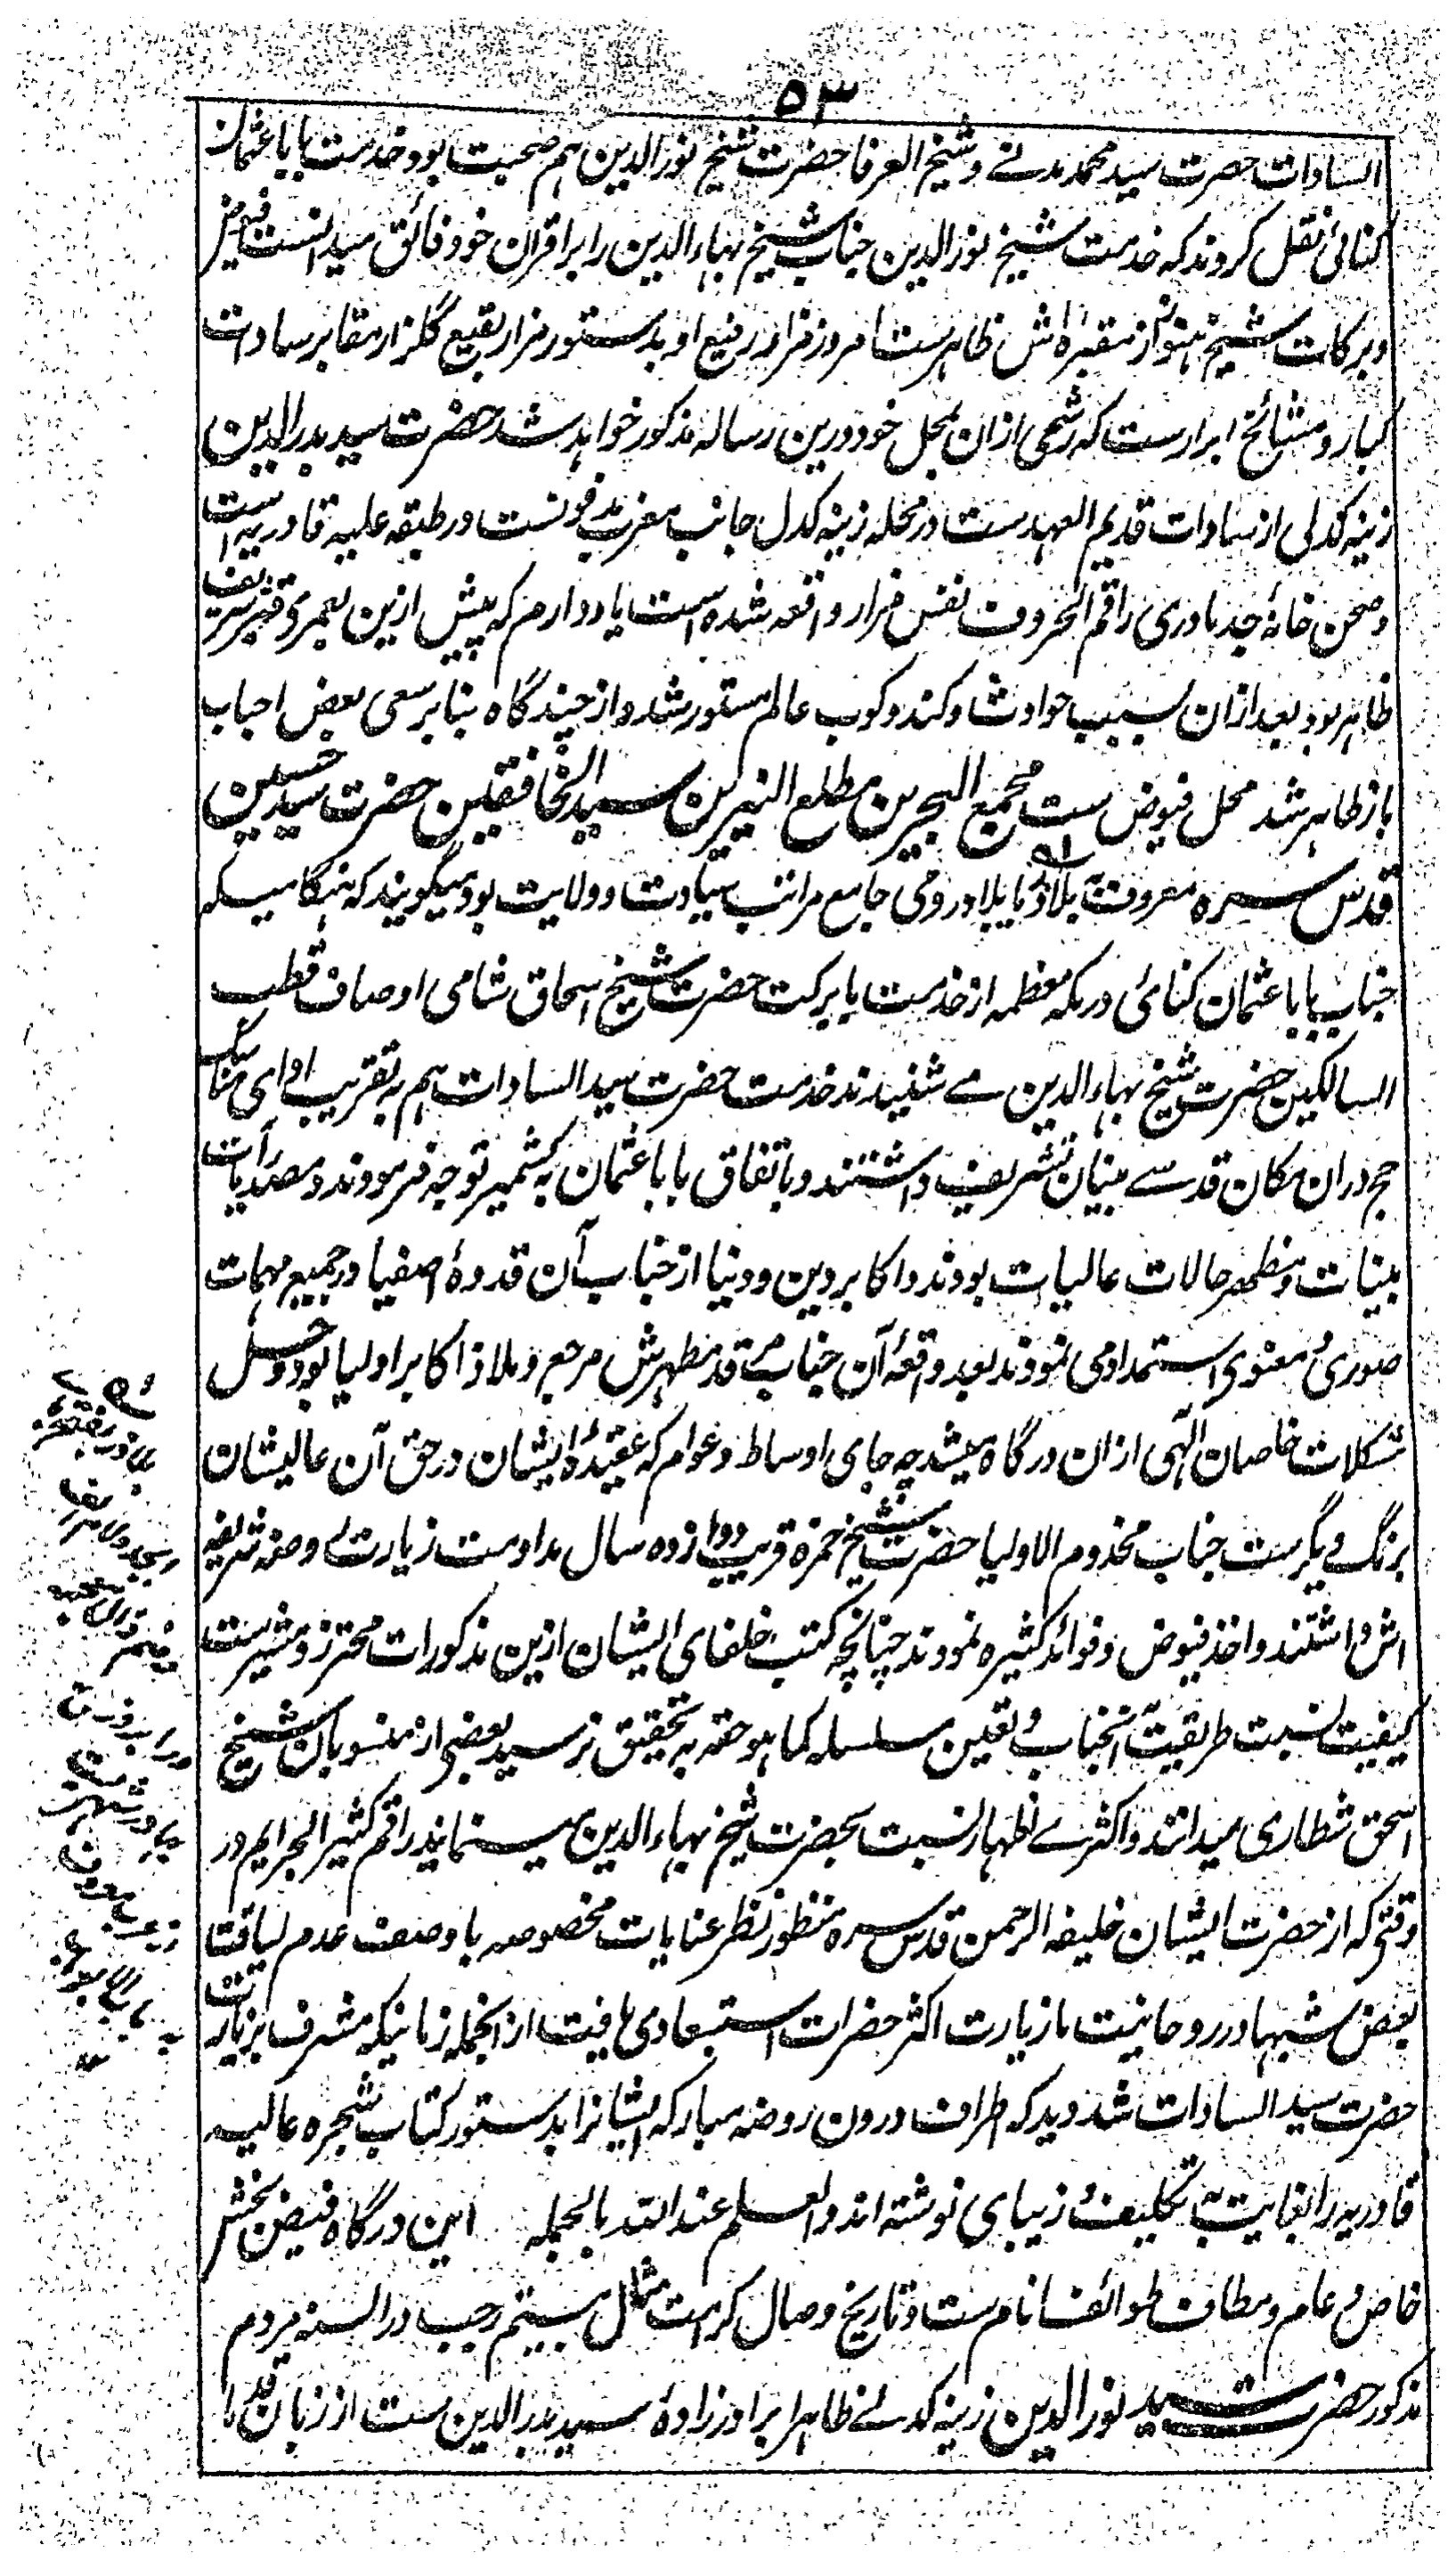 ۵۳
السادات حضرت سید محمد مدنے و شیخ العرفا حضرت شیخ نور الدین ہم صحبت بود و خدمت بابا عثمان
کنائی نقل کردند که خدمت شیخ نور الدین جناب شیخ بهاء الدین را بر اقران خود فائق میدانست فیوض
و برکات شیخ هنوز از مقبره اش ظاهرست امروز مزار رفیع او بدستور مزار بقیع گلزار مقابر سادات
کبار و مشائخ ابرارست که رشحی ازان بمحل خود درین رساله مذکور خواهد شد حضرت سید بدر الدین
زینه کدلی از سادات قدیم العهدست در محله زینه کدل جانب مغرب مدفونست در طبقه علیه قادریه است
و صحن خانهٔ جد مادری راقم الحروف نفس مزار واقعه شده است یاد دارم که پیش ازین بعمری قبر شریف
ظاهر بود بعد ازان بسبب حوادث و کند و کوب عالم مستور شد و از چندگاه بنابر سعی بعض احباب
باز ظاهر شد محل فیوض ست مجمع البحرین مطلع النیرین سید الخافقین حضرت سید حسین
قدس سره معروف به بلادرومی جامع مراتب سیادت و ولایت بود میگویند که هنگامیکه
جناب بابا عثمان کنائی در مکه معظمه از خدمت بابرکت حضرت شیخ اسحاق شامی اوصاف قطب
السالکین حضرت شیخ بهاء الدین مے شنیدند خدمت حضرت سید السادات ہم به تقریب ادای مناسک
حج دران مکان قدسے بنیان تشریف داشتند و باتفاق بابا عثمان به کشمیر توجه فرمودند و مصدر آیات
بینات و مظهر حالات عالیات بودند و اکابر دین و دنیا از جناب آن قدوهٔ اصفیا در جمیع مهمات
صوری و معنوی استمداد می نمودند بعد وقعهٔ آن جناب مرقد مطهرش مرجع و ملاذ اکابر اولیا بود و حل
مشکلات خاصان الٰهی ازان درگاه میشد چه جای اوساط و عوام که عقیدهٔ ایشان در حق آن عالیشان
برنگ دیگرست جناب مخدوم الاولیا حضرت شیخ حمزه قریب دوازده سال مداومت زیارت روضه شریفه
اش داشتند و اخذ فیوض و فوائد کثیره نمودند چنانچه کتب خلفای ایشان ازین مذکورات و مشهرست
کیفیت نسبت طریقت آنجناب و تعین سلسله کما هو حقه به تحقیق نرسید بعضی از منسوبان شیخ
اسحق شطاری میدانند و اکثرے اظهار نسبت بحضرت شیخ بهاء الدین مینمایند راقم کثیر الجرایم در
وقتی که از حضرت ایشان خلیفه الرحمن قدس سره منظور نظر عنایات مخصوصه باوصف عدم لیاقت
بعض شبها در روحانیت با زیارت اکثر حضرات استسعادی یافت از انجمله زمانیکه مشرف بزیارت
حضرت سید السادات شد دید که اطراف درون روضه مبارکه ایشانرا بدستور کتاب شجره عالیه
قادریه را بغایت به تکلیف و زیبای نوشته اند والعلم عند الله بالجمله این درگاه فیض بخش
خاص و عام و مطاف طوائف انام ست و تاریخ وصال کرامت بستم رجب در السنه مردم
مذکور حضرت سید نور الدین زینه کدلے ظاهرا برادر زادهٔ سید بدر الدین ست از زبان